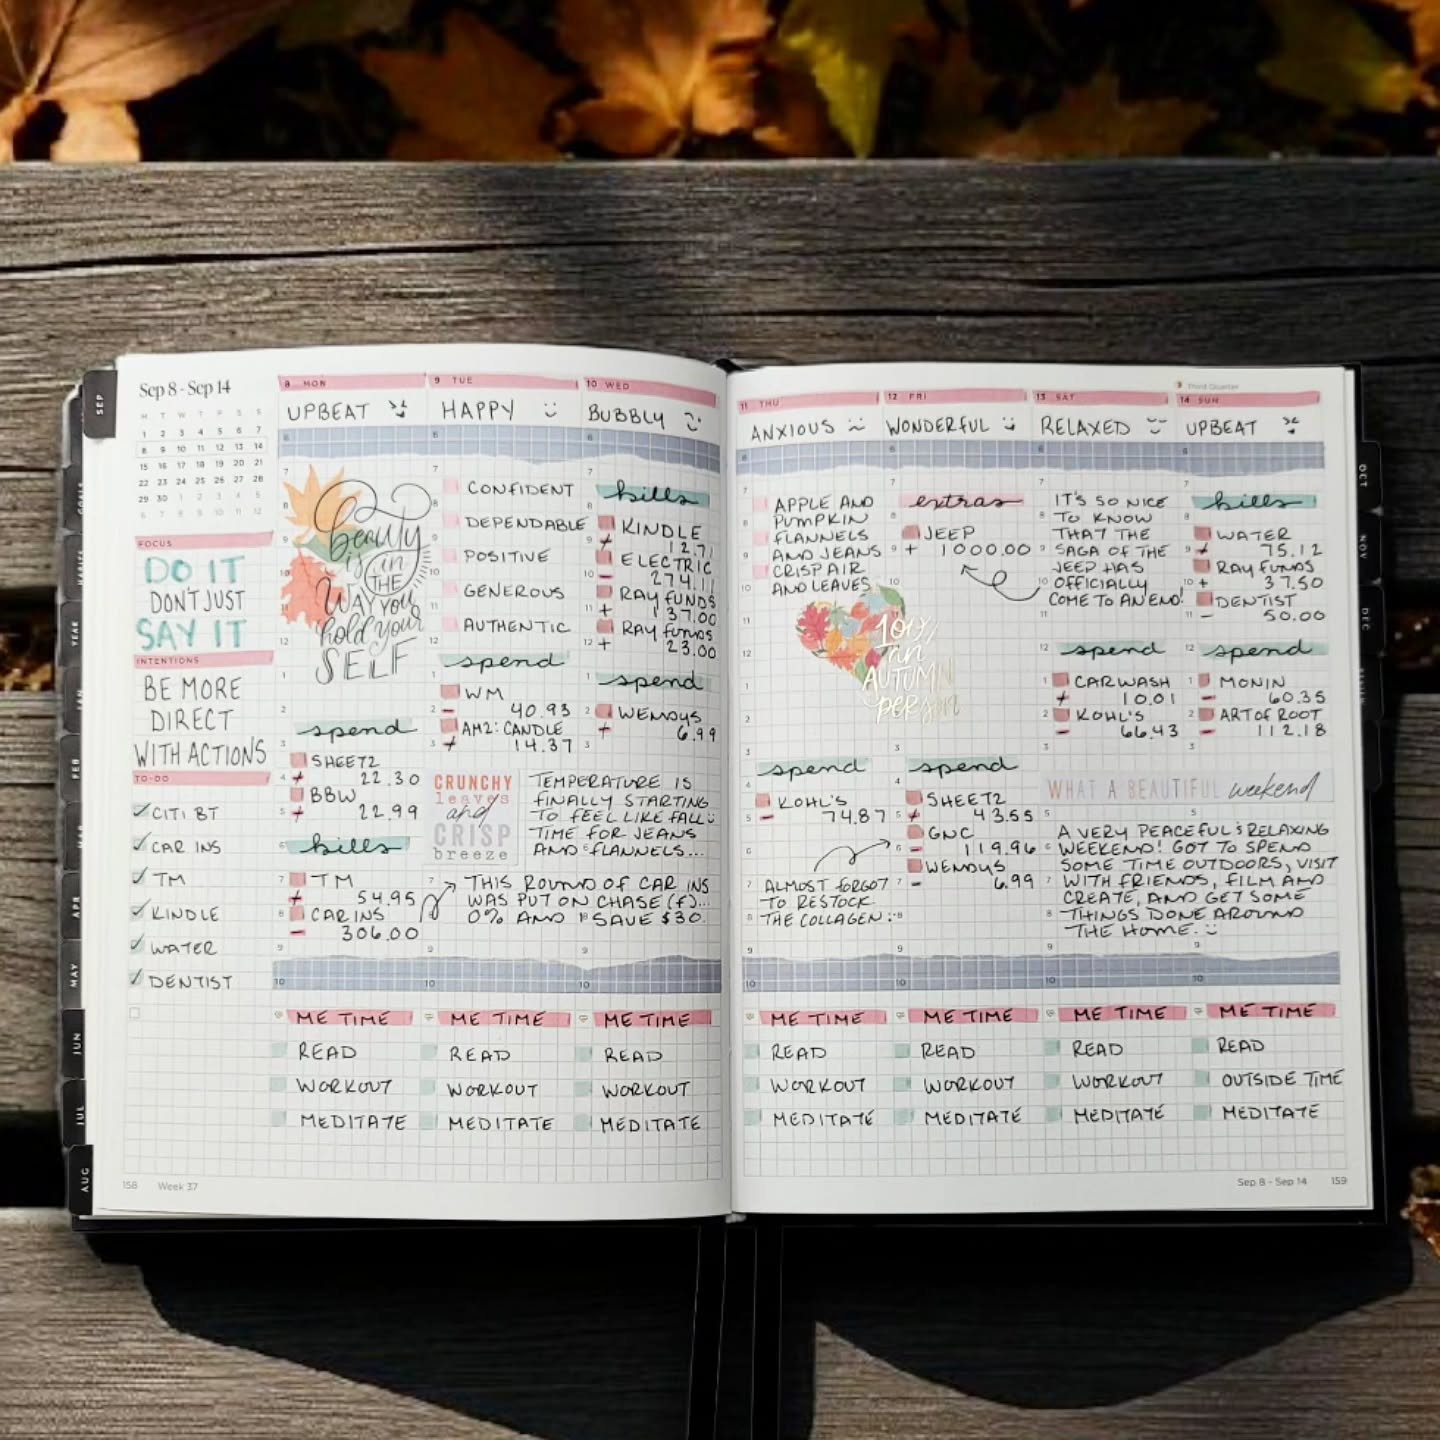 Sep 8 - Sep 14
M T W T F S S
1 2 3 4 5 6 7
8 9 10 11 12 13 14
15 16 17 18 19 20 21
22 23 24 25 26 27 28
29 30 1 2 3 4 5
6 7 8 9 10 11 12
FOCUS
DO IT
DON'T JUST
SAY IT
INTENTIONS
BE MORE
DIRECT
WITH ACTIONS
TO-DO
✓ CITI BT
✓ CAR INS
✓ TM
✓ KINDLE
✓ WATER
✓ DENTIST
8 MON
UPBEAT
beauty
is in
THE
WAY you
hold your
SELF
spend
SHEETZ
+ 22.30
BBW
+ 22.99
bills
TM
+ 54.95
CAR INS
- 306.00
ME TIME
READ
WORKOUT
MEDITATE
9 TUE
HAPPY
CONFIDENT
DEPENDABLE
POSITIVE
GENEROUS
AUTHENTIC
spend
WM
- 40.93
AMZ: CANDLE
+ 14.37
CRUNCHY
leaves
and
CRISP
breeze
TEMPERATURE IS
FINALLY STARTING
TO FEEL LIKE FALL
TIME FOR JEANS
AND FLANNELS...
THIS ROUND OF CAR INS
WAS PUT ON CHASE (F)...
0% AND I SAVE $30.
ME TIME
READ
WORKOUT
MEDITATE
10 WED
BUBBLY
bills
KINDLE
+ 12.71
ELECTRIC
- 274.11
RAY FUNDS
+ 137.00
RAY FUNDS
+ 23.00
spend
WENDYS
+ 6.99
ME TIME
READ
WORKOUT
MEDITATE
158 Week 37
11 THU
ANXIOUS
APPLE AND
PUMPKIN
FLANNELS
AND JEANS
CRISP AIR
AND LEAVES
100%
an
AUTUMN
person
spend
KOHL'S
- 74.87
ALMOST FORGOT
TO RESTOCK
THE COLLAGEN
ME TIME
READ
WORKOUT
MEDITATE
12 FRI
WONDERFUL
extras
JEEP
+ 1000.00
spend
SHEETZ
+ 43.55
GNC
- 119.96
WENDYS
- 6.99
ME TIME
READ
WORKOUT
MEDITATE
Third Quarter
13 SAT
RELAXED
IT'S SO NICE
TO KNOW
THAT THE
SAGA OF THE
JEEP HAS
OFFICIALLY
COME TO AN END!
spend
CARWASH
+ 10.01
KOHL'S
- 66.43
WHAT A BEAUTIFUL weekend
A VERY PEACEFUL & RELAXING
WEEKEND! GOT TO SPEND
SOME TIME OUTDOORS, VISIT
WITH FRIENDS, FILM AND
CREATE, AND GET SOME
THINGS DONE AROUND
THE HOME.
ME TIME
READ
WORKOUT
MEDITATE
14 SUN
UPBEAT
bills
WATER
+ 75.12
RAY FUNDS
+ 37.50
DENTIST
- 50.00
spend
MONIN
- 60.35
ART OF ROOT
- 112.18
ME TIME
READ
OUTSIDE TIME
MEDITATE
Sep 8 - Sep 14 159
SEP
YEAR
JAN
FEB
MAR
APR
MAY
JUN
JUL
AUG
OCT
NOV
DEC